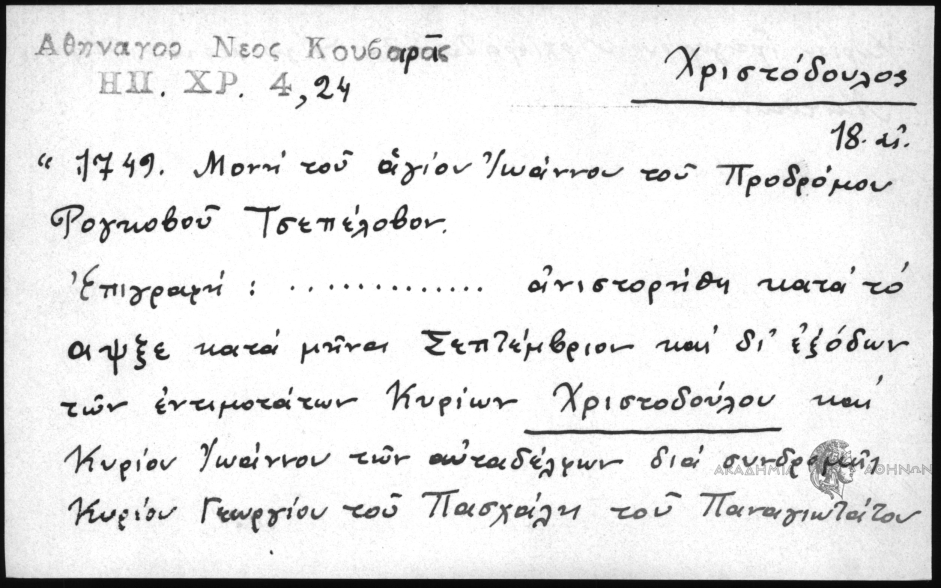 Αθηναγορ Νεος Κουβαρᾶς
ΗΠ. ΧΡ. 4, 24
Χριστόδουλος
18. αἰ.
“ 1749. Μονή τοῦ ἁγίου Ἰωάννου τοῦ Προδρόμου
Ρογκοβοῦ Τσεπέλοβον.
Ἐπιγραφή : ............. ἀνιστορήθη κατά τό
αψξε κατά μῆναι Σεπτέμβριον καί δι’ ἐξόδων
τῶν ἐντιμοτάτων Κυρίων Χριστοδούλου καί
Κυρίου Ἰωάννου τῶν αὐταδέλφων διά συνδρομῆς
Κυρίου Γεωργίου τοῦ Πασχάλη τοῦ Παναγιωτάτου
ΑΚΑΔΗΜΙΑ ΑΘΗΝΩΝ